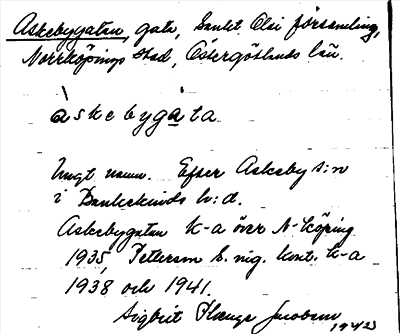 Askebygatan, gata, Sankt Olai församling,
Norrköpings stad, Östergötlands län.
àskebygàta
Ungt namn. Efter Askeby s:n
i Bankekinds h:d.
Askebygatan k-a över N-köping
1935, Peterson E. nig. kont. k-a
1938 och 1941.
Sigbrit Plænge Jacobson
1942